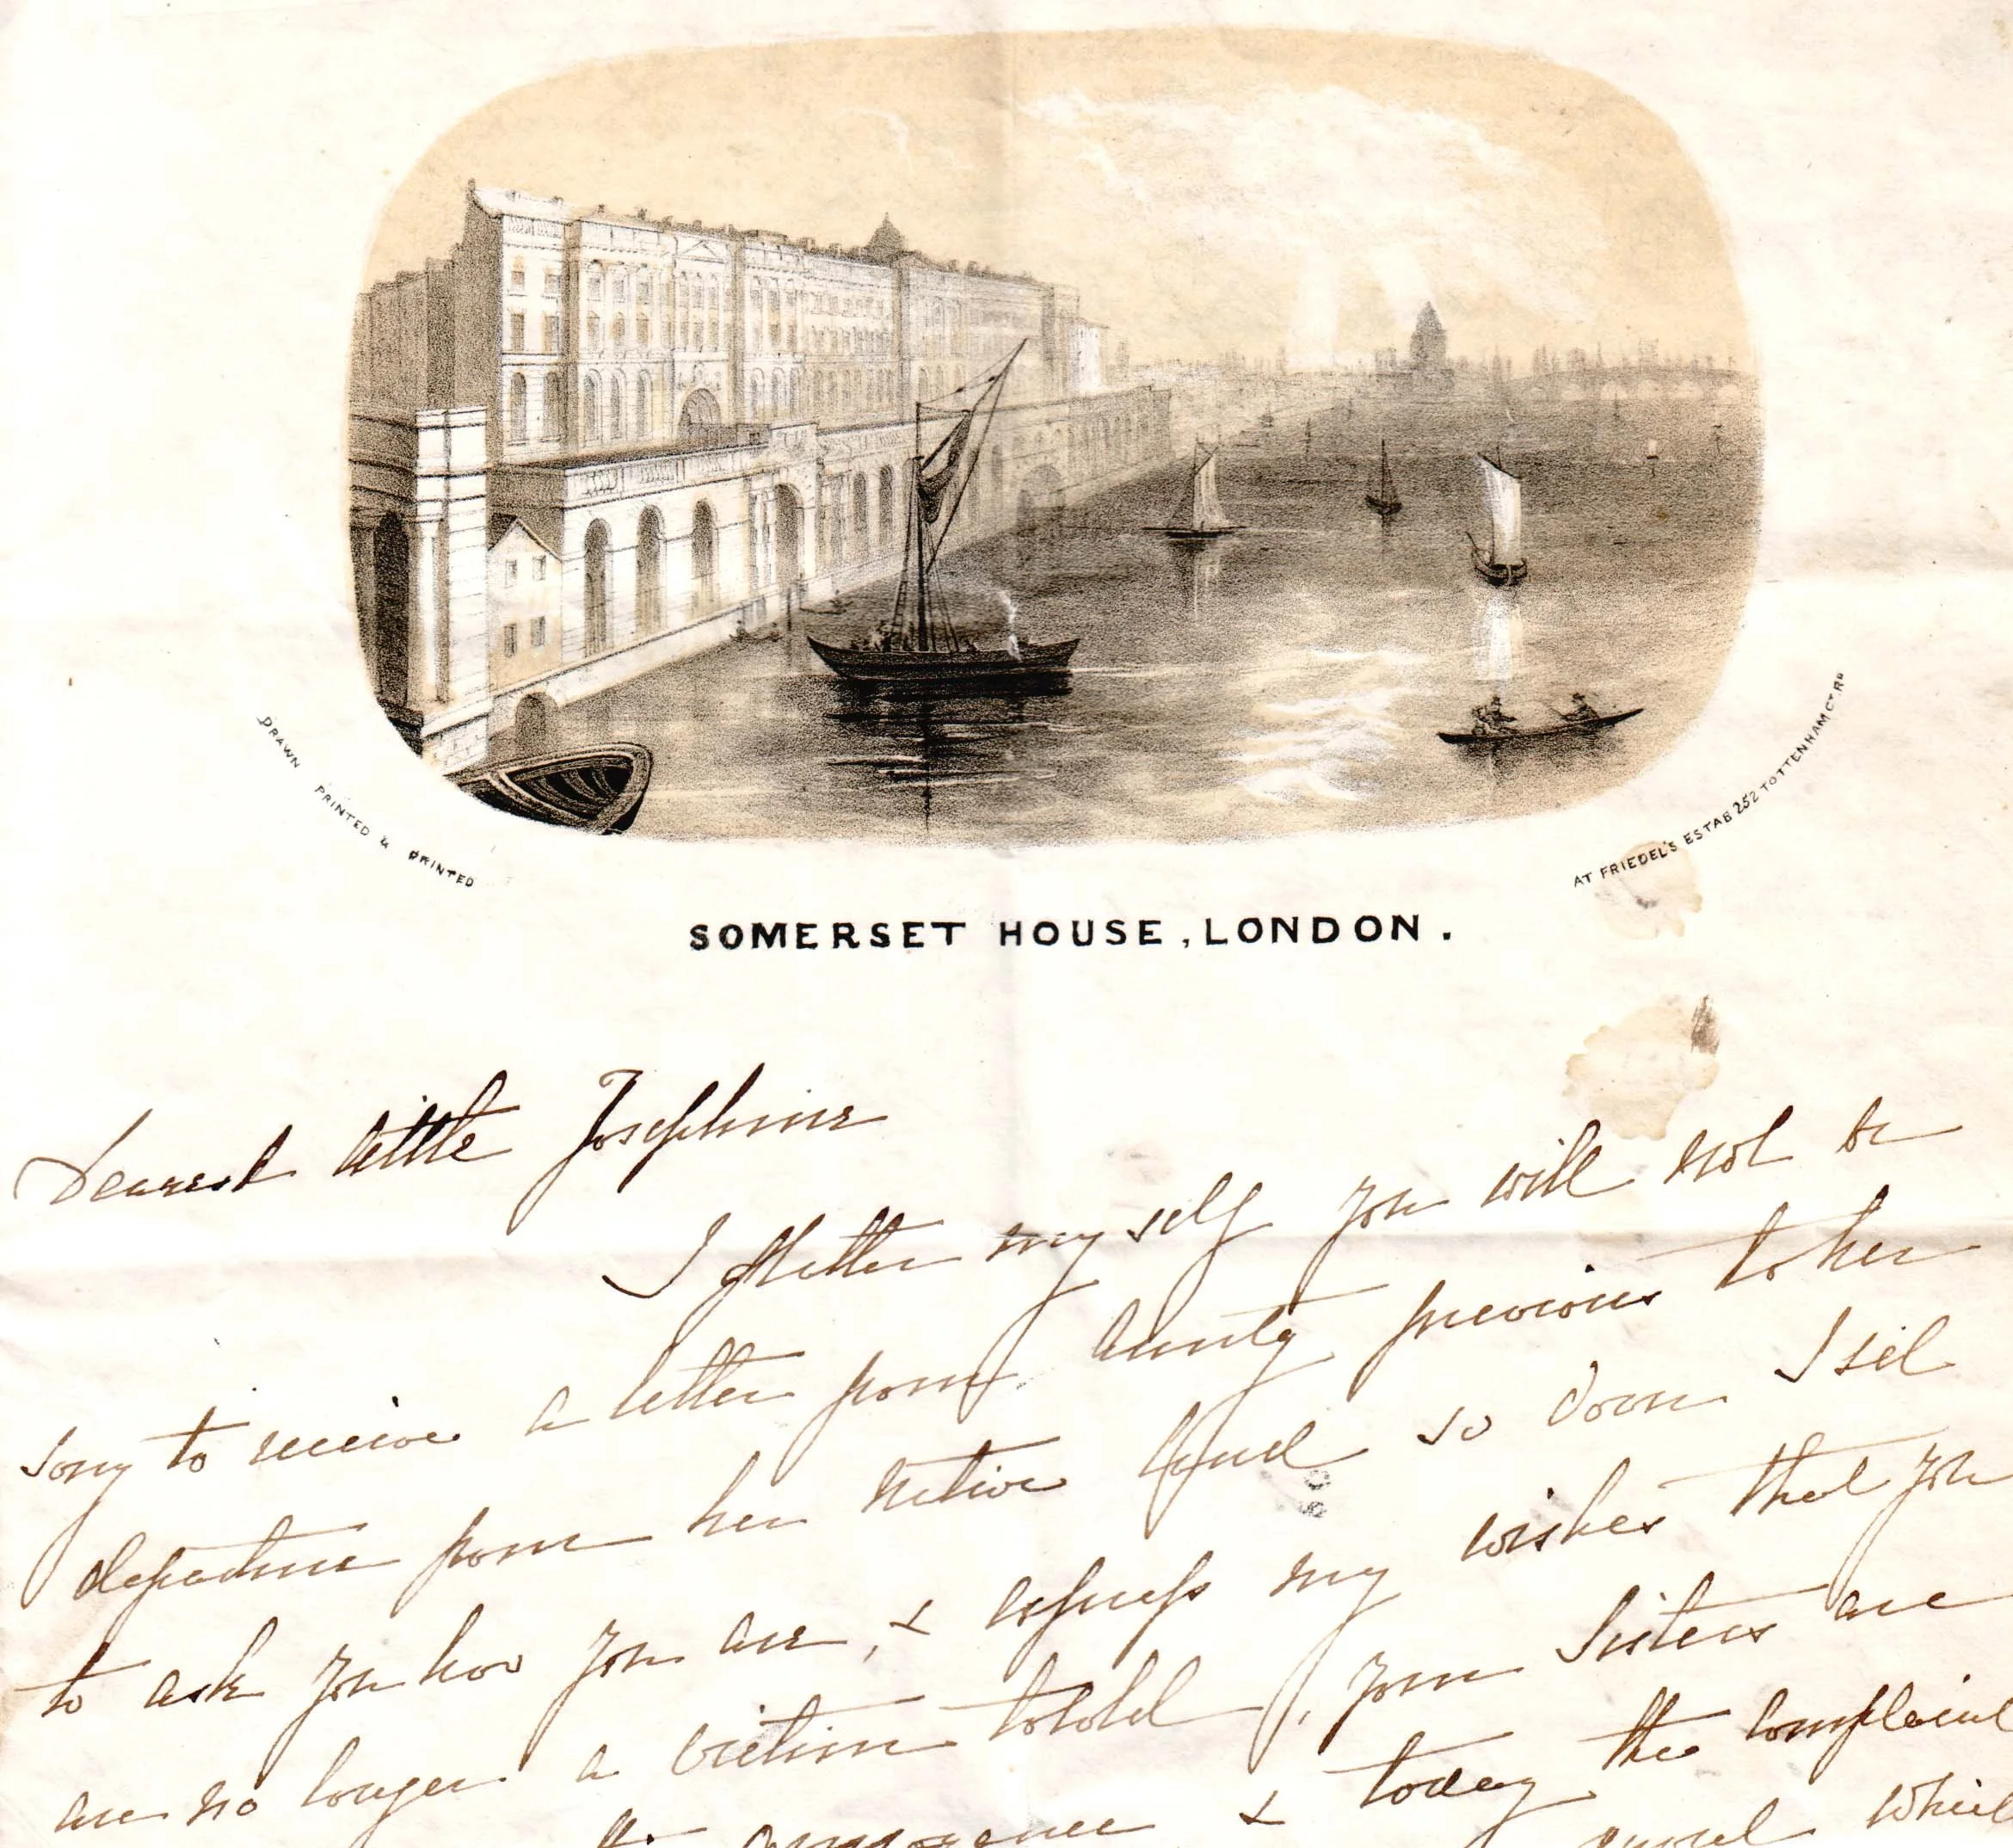 DRAWN PRINTED & PRINTED
AT FRIEDEL'S ESTAB 252 TOTTENHAM CT RD
SOMERSET HOUSE, LONDON.
Dearest little Josephine
I flatter myself you will not be
sorry to receive a letter from Aunty previous to her
departure from her native land so down I sit
to ask you how you are, & express my wishes that you
are no longer a victim to cold, your Sisters are
& today the complaint